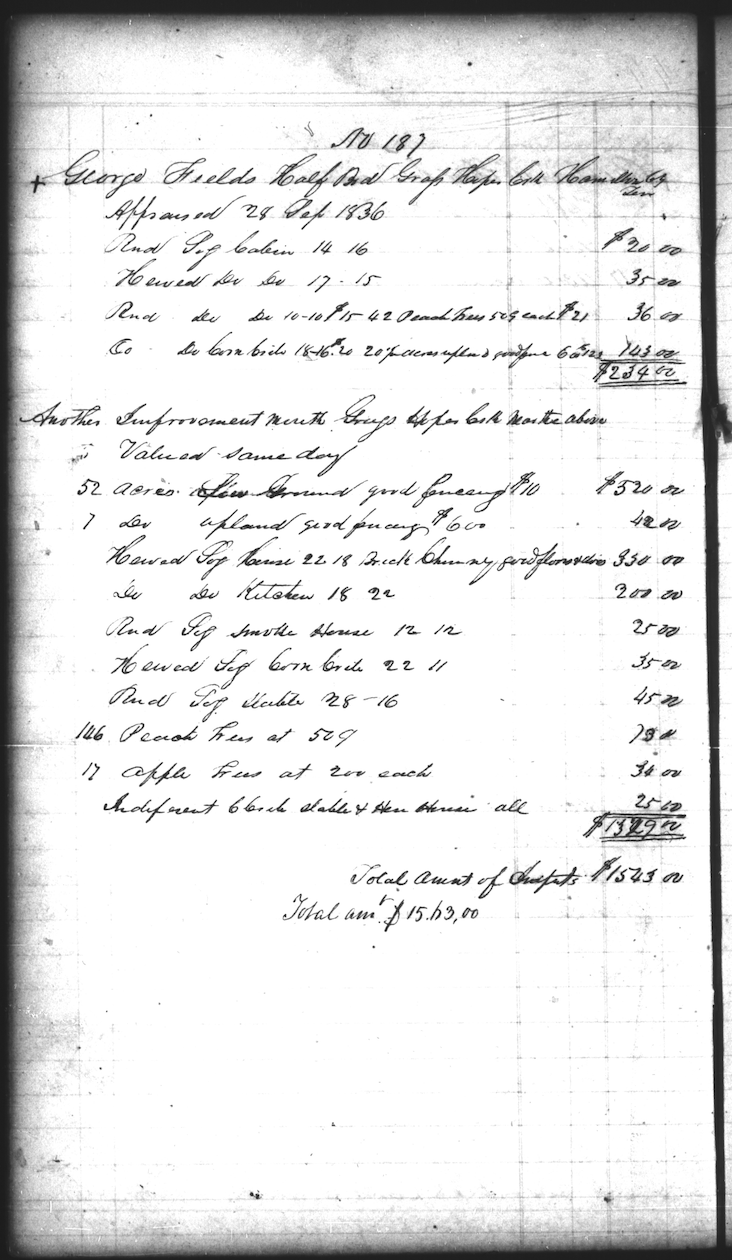 No 187
+ George Fields Half Brd Grass Hoper Crk Hamilton Cty
Ten
Appraised 28 Sep 1836
Rnd Log Cabin 14 16 $20 00
Hewed Do Do 17 - 15 35 00
Rnd Do Do 10-10 $15 42 Peach Trees 50¢ each $21 36 00
Do Do Corn Crib 18-16 $20 20½ acres upland good fence 6 00 123 143 00
$234 00
Another Improvement mouth Hoper Crk above
Valued same day
52 acres Low Ground good fenceing $10 $520 00
7 Do upland good fenceing $6 00 42 00
Hewed Log House 22 18 Brick Chimney good floors & dors 330 00
Do Do Kitchen 18 22 200 00
Rnd Log Smoke House 12 12 25 00
Hewed Log Corn Crib 22 11 35 00
Rnd Log Stable 28-16 45 00
146 Peach Trees at 50¢ 73 00
17 apple Trees at 200 each 34 00
Indiferent Crib Stable & Hen House all 25 00
$1329 00
Total Amnt of $1543 00
Total amt $ 15.63,00